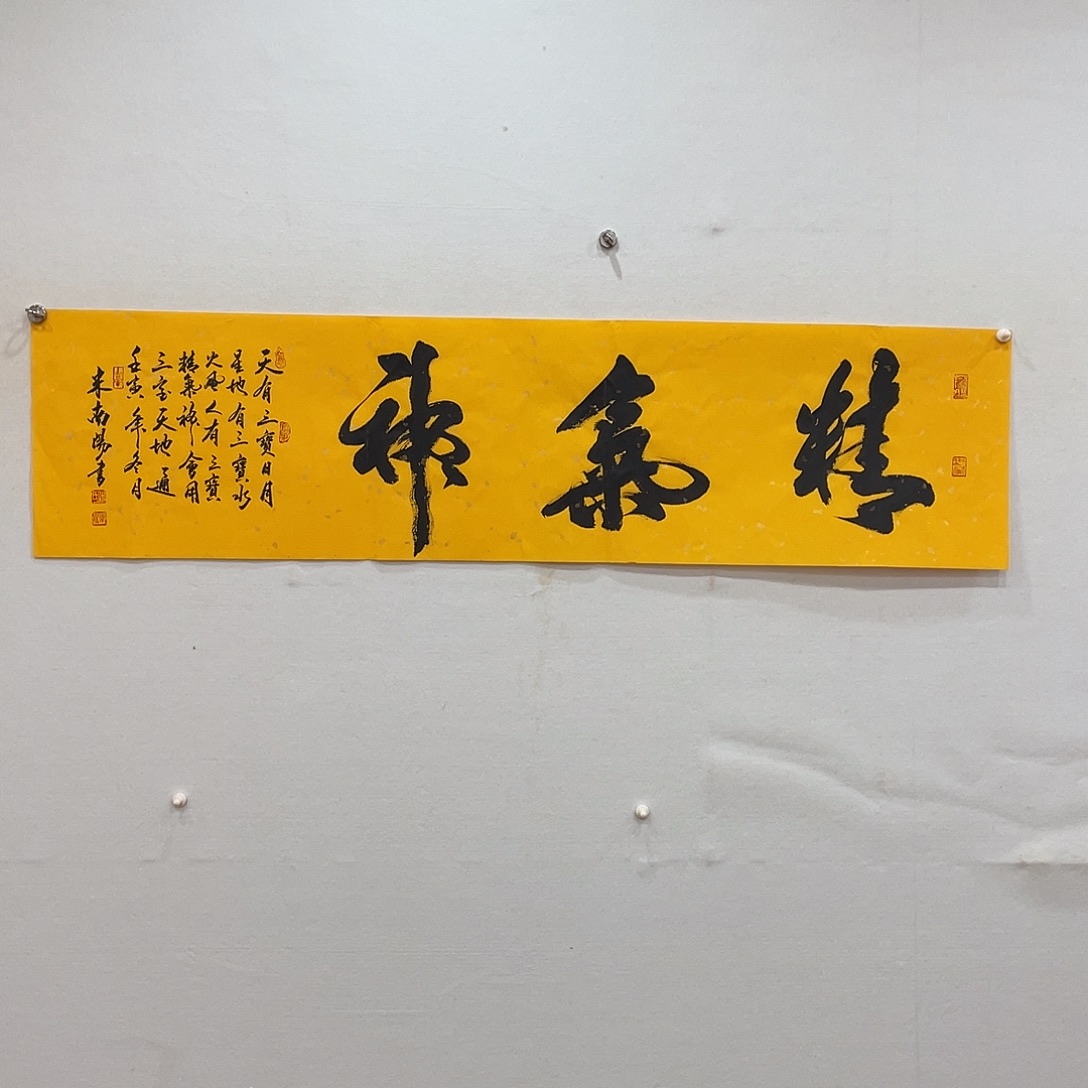 精氣神
天有三寶日月
星地有三寶水
火風人有三寶
精氣神會用
三宝天地通
壬寅年冬月
南陽书